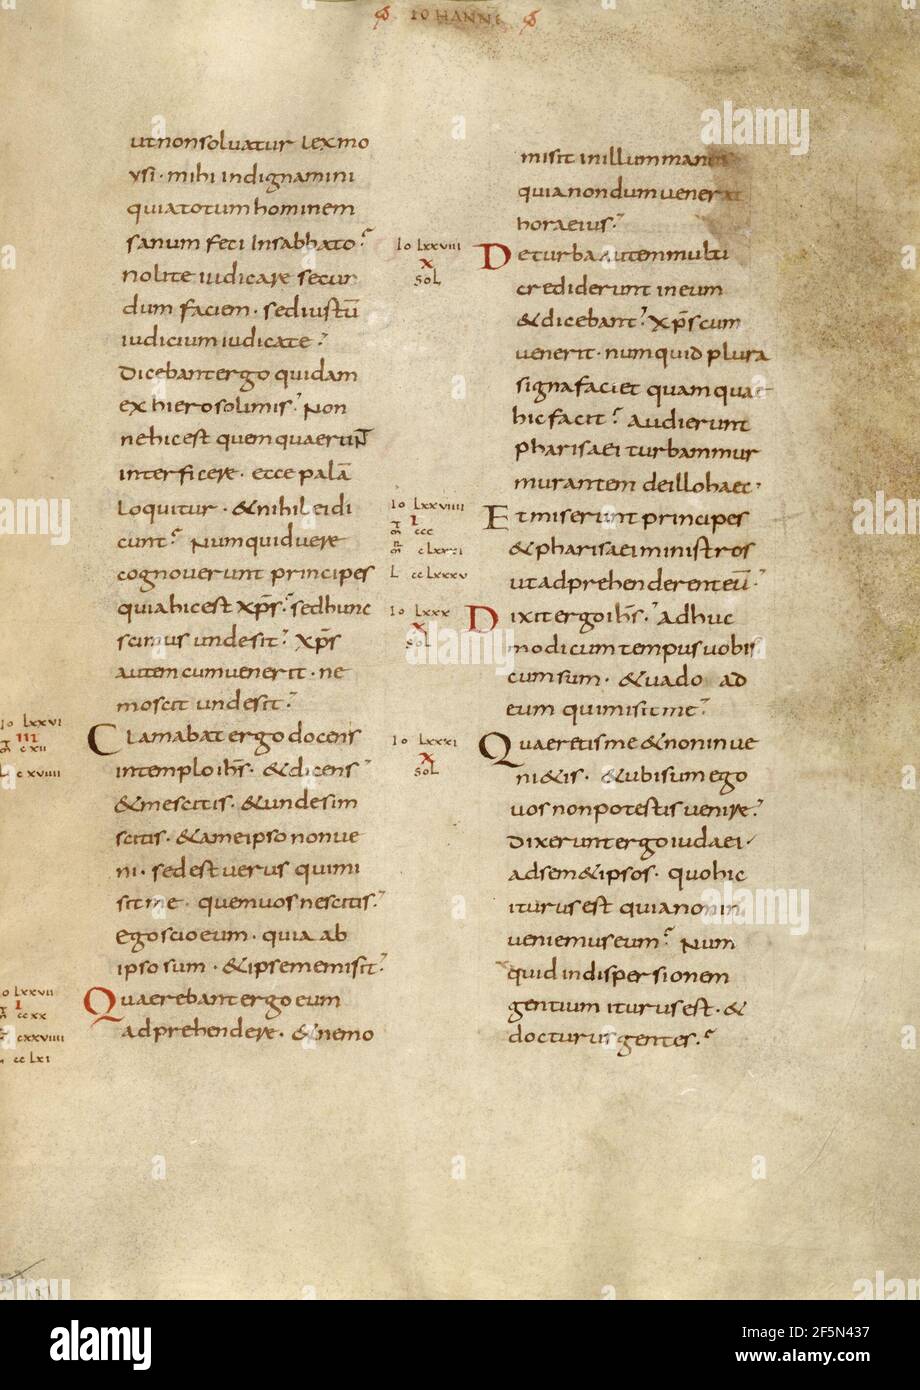 IOHANNE
utnonsoluatur lexmo
ysi · mihi indignamini
quiatotumhominem
sanum feci insabbato
nolite iudicare secun
dum faciem · sediustū
iudicium iudicate
Dicebantergo quidam
ex hierosolimis Non
nehicest quem quaerunt
interficere · ecce palā
loquitur · &nihil eidi
cunt Numquiduere
cognouerunt principes
quiahicest xp̄s sedhunc
scimus undesit xp̄s
autem cumuenerit · ne
moscit undesit
Io lxxvi
III
cxii
L cxviiii
Clamabat ergo docens
intemploihs̄ · &dicens
&mescitis · &undesim
scitis · &ameipso nonue
ni · sedest uerus quimi
sitme · quemuosnescitis
egoscioeum · quia ab
ipso sum · &ipsememisit
Io lxxvii
I
ccxx
cxxviiii
ccLxi
Quaerebantergoeum
adprehendere · &nemo
misit inillummanus
quianondumuenerat
horaeius
Io lxxviii
X
sol
Deturba autemmulti
crediderunt ineum
&dicebant xp̄scum
uenerit · numquid plura
signafaciet quamquae
hicfacit Audierunt
pharisaei turbammur
murantem deillohaec ·
Io lxxviiii
I
ccc
L ccLxxxv
Etmiserunt principes
&pharisaeiministros
utadprehenderenteū
Io lxxx
X
sol
Dixitergoihs̄ Adhuc
modicumtempusuobis
cumsum · &uado ad
eum quimisitme
Io lxxxi
X
sol
Quaeretisme&noninue
ni&is · &ubisumego
uosnonpotestisuenire
Dixeruntergoiudaei
adsem&ipsos · quohic
iturusest quianonin
ueniemuseum Num
quid indispersionem
gentium iturusest · &
docturusgentes
alamy
Image ID: 2F5N437
www.alamy.com